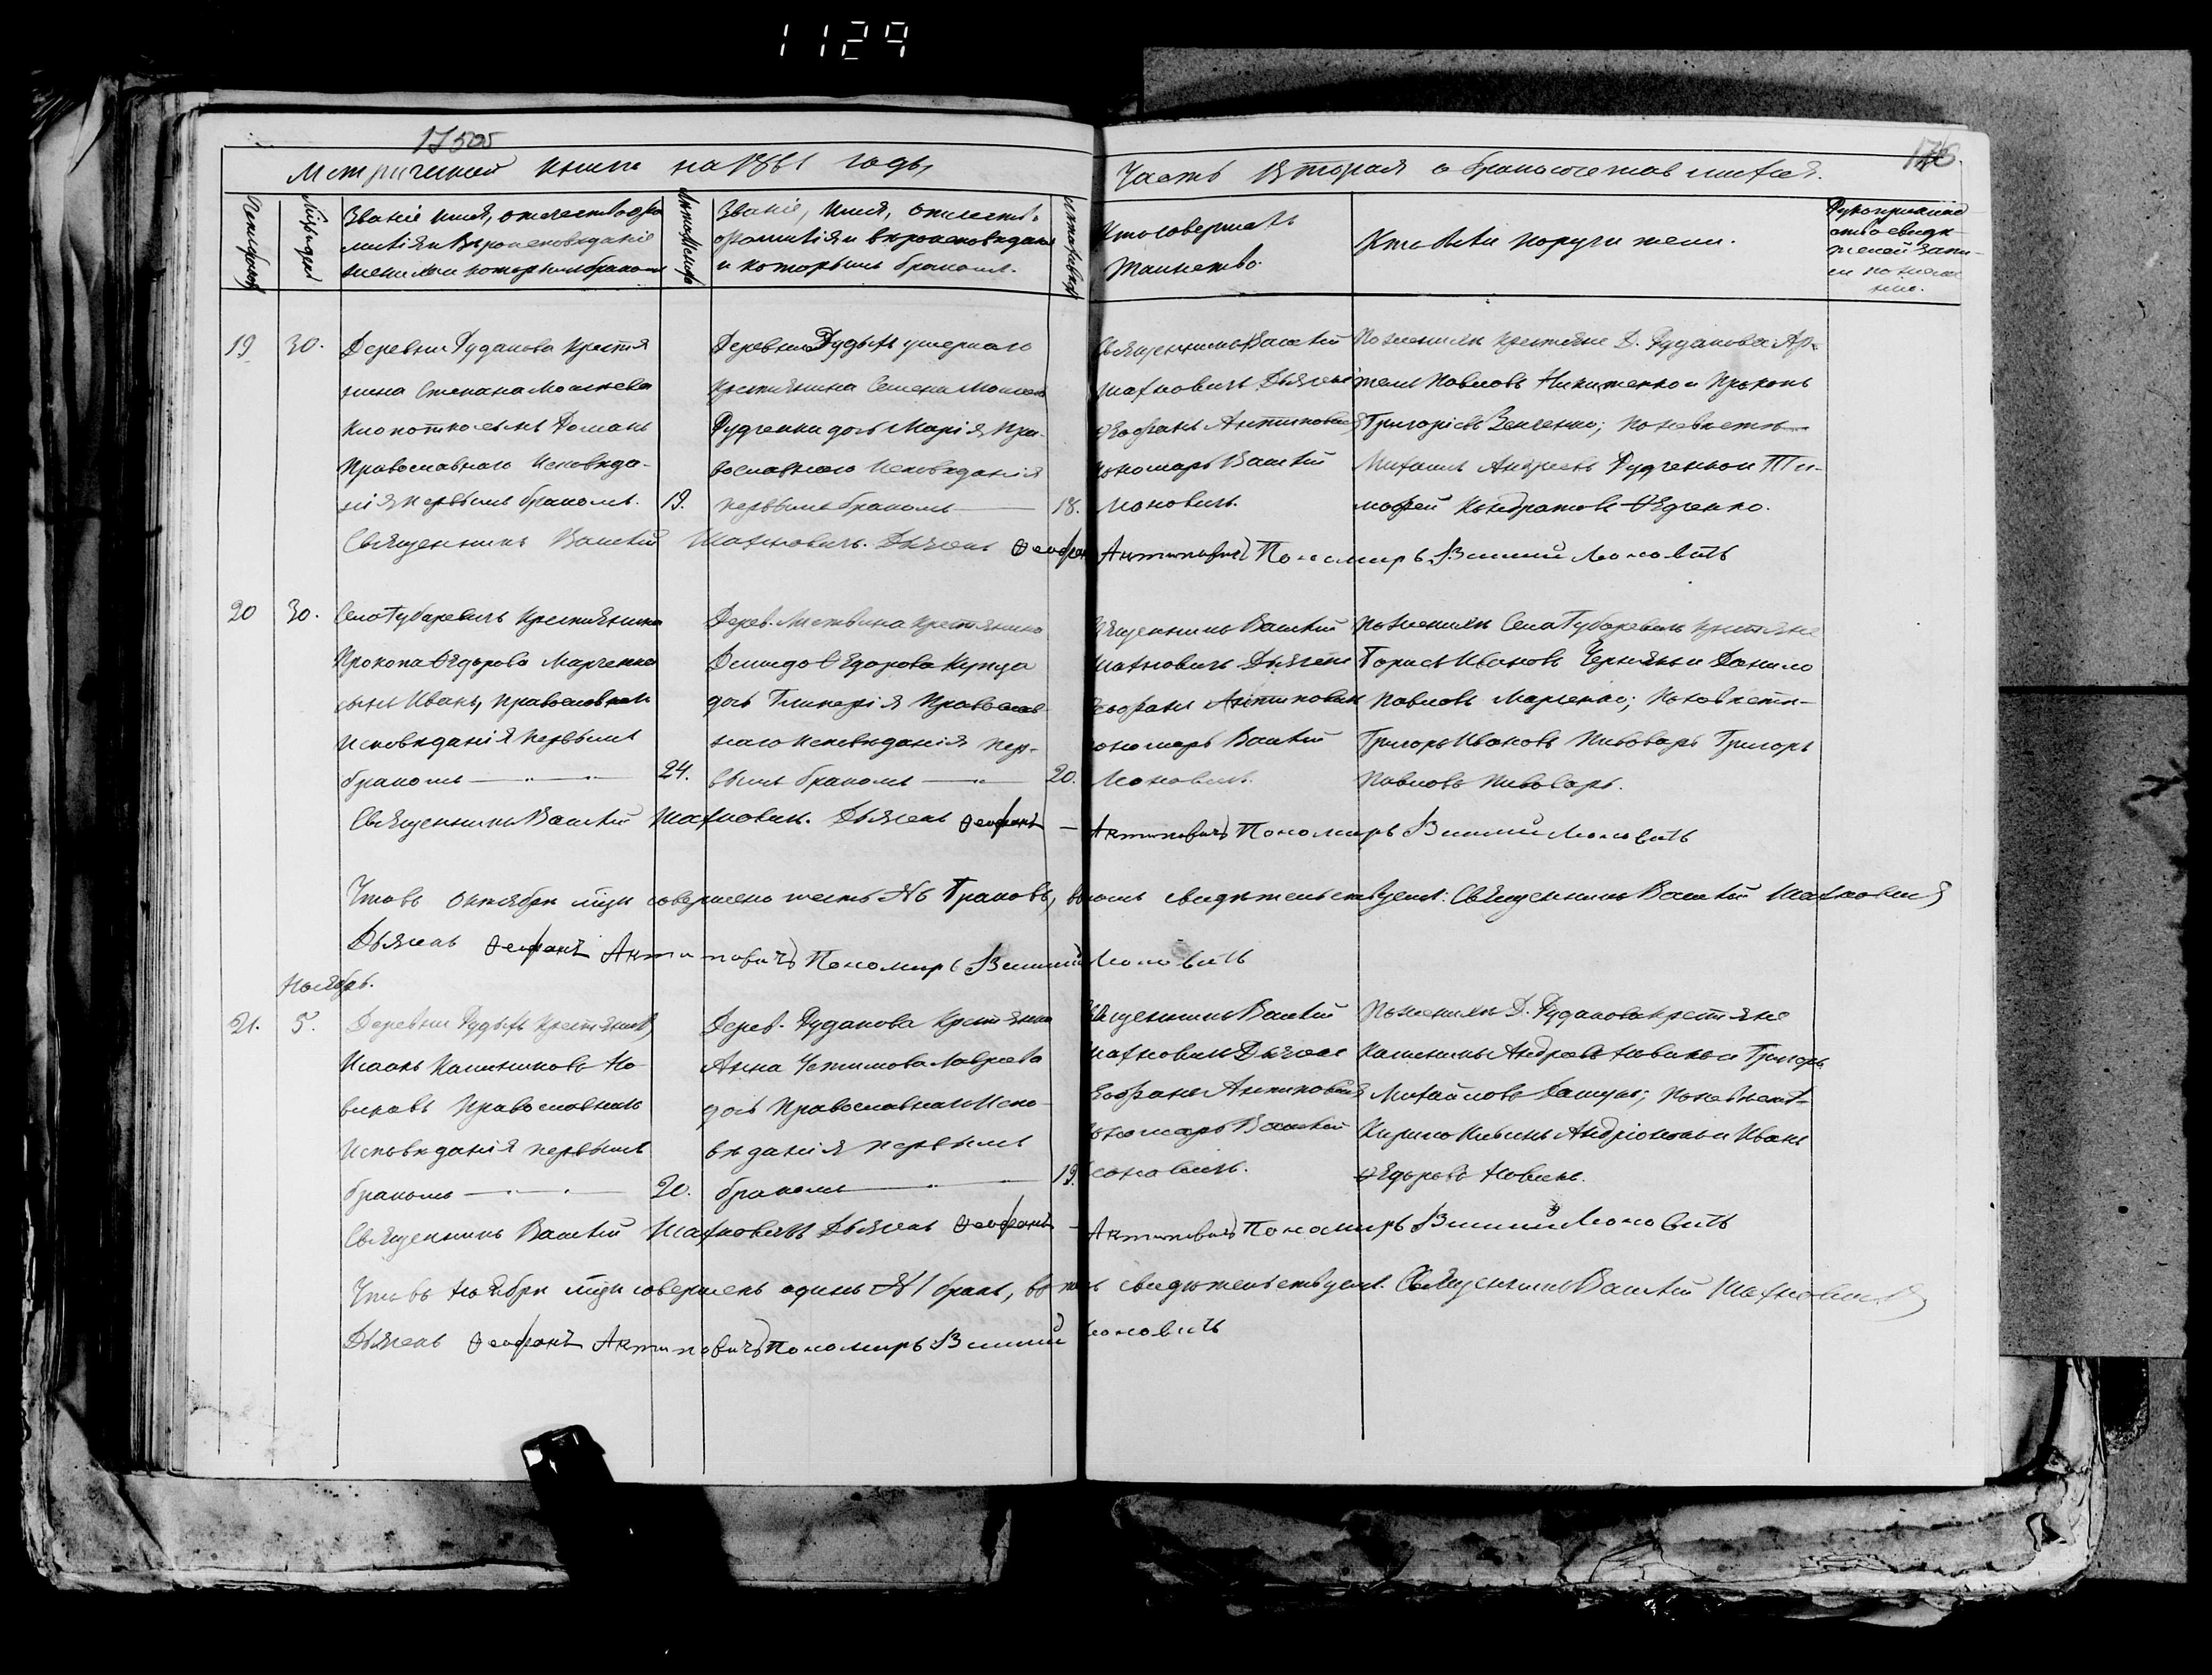 1129
17505
176.
Метрической книги на 1861 годъ,
Часть вторая о бракосочетавшихся.
Званіе имя, отечество фа
милія и вѣроисповѣданіе
жениха и которымъ бракомъ
Званіе, имя, отчество
фамилія и вѣроисповѣданіе
и которымъ бракомъ.
Кто совершалъ
таинство
Кто были поручители.
19 30.
Деревни Рудакова крестья
нина Степана Моисеева
Клопотко сынъ Романъ
Православнаго Исповѣда-
нія первымъ бракомъ. 19.
Деревни Рудыхъ умершаго
крестьянина Семена Моисеева
Рудченки дочь Марія Пра-
вославнаго Исповѣданія
первымъ бракомъ 18.
Священникъ Василій
Шахновичъ Дьячекъ
Ѳеофанъ Антиповичъ
Пономарь Василій
Мановичъ.
По женихѣ крестьяне Д. Рудакова Ар-
темъ Павловъ Никитенко и Прокопъ
Григорьевъ Зенченко; по невѣстѣ
Михаилъ Андреевъ Рудченко и Ти-
мофей Кондратовъ Ѳедченко.
Священникъ Василій Шахновичъ. Дьячекъ Ѳеофанъ Антиповичъ Пономарь Василій Мановичъ
20 30.
Села Губаревичъ крестьянина
Прокопа Ѳедорова Марченка
сынъ Иванъ, православнаго
Исповѣданія первымъ
бракомъ 24.
Дерев. Литвина крестьянина
Демида Ѳедорова Купца
дочь Гликерія Православ-
наго Исповѣданія пер-
вымъ бракомъ 20.
Священникъ Василій
Шахновичъ Дьячекъ
Ѳеофанъ Антиповичъ
Пономарь Василій
Мановичъ.
По женихѣ Села Губаревичъ крестьяне
Борисъ Ивановъ Чернякъ и Данило
Павловъ Марченко; по невѣстѣ-
Григорь Ивановъ Пивоваръ Григорь
Павловъ Пивоваръ.
Священникъ Василій Шахновичъ. Дьячекъ Ѳеофанъ Антиповичъ Пономарь Василій Мановичъ
Что въ октябрѣ мцѣ совершено шесть №6 браковъ, въ томъ свидѣтельствуемъ: Священникъ Василій Шахновичъ
Дьячекъ Ѳеофанъ Антиповичъ Пономарь Василій Мановичъ
Ноябрь.
21. 5.
Деревни Рудыхъ крестьянинъ
Исаакъ Калинниковъ Но
виковъ Православнаго
Исповѣданія первымъ
бракомъ 20.
Дерев. Рудакова крестьянина
Анна Устимова Лавреева
дочь Православнаго Испо-
вѣданія первымъ
бракомъ 19.
Священникъ Василій
Шахновичъ Дьячекъ
Ѳеофанъ Антиповичъ
Пономарь Василій
Мановичъ.
По женихѣ Д. Рудакова крестьяне
Калинникъ Андреевъ Новикъ и Григорь
Михайловъ Дашукъ; по невѣстѣ-
Ѳедоровъ Новикъ.
Священникъ Василій Шахновичъ Дьячекъ Ѳеофанъ Антиповичъ Пономарь Василій Мановичъ
Что въ Ноябрѣ мцѣ совершенъ одинъ №1 бракъ, въ томъ свидѣтельствуемъ. Священникъ Василій Шахновичъ
Дьячекъ Ѳеофанъ Антиповичъ Пономарь Василій Мановичъ